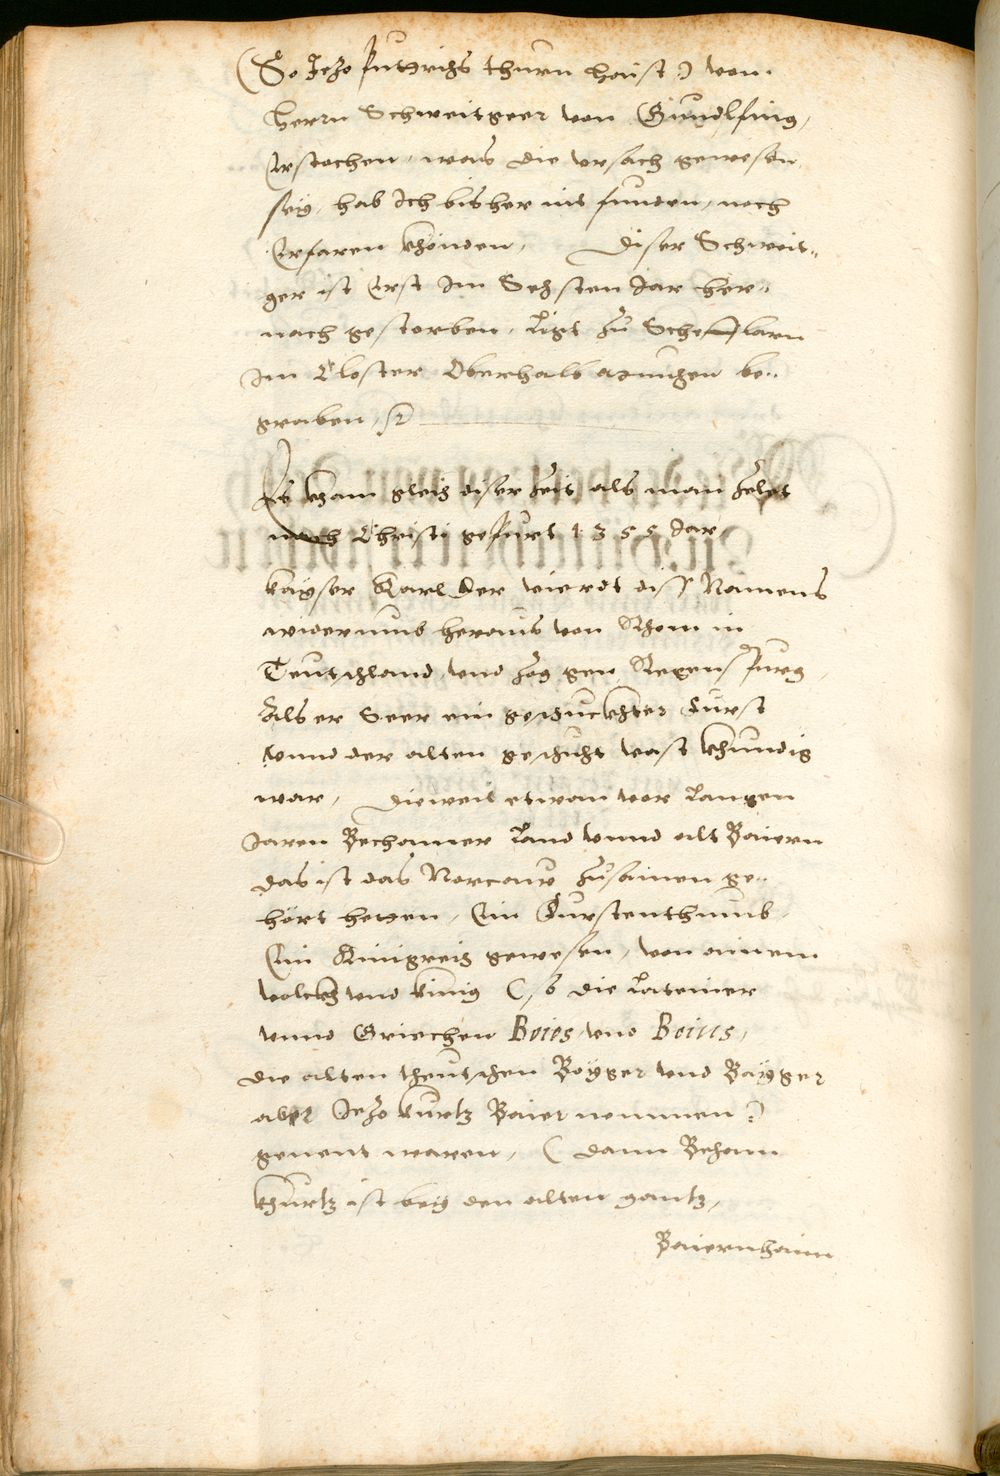 (So Jezo puttrichs thurn haist) von
herrn Schweitgeer von Gundlfing,
Erstochen, was die vrsach gewesen
seÿ, hab Ich bisher nit funden, noch
Erfaren khönden, Diser Schweit„
ger ist Erst Im Sechsten Jar her„
nach gestorben, Ligt zu Scheftlarn
Im Closter Oberhalb München be„
graben,
Es kham gleich diser Zeit als man Zelet
nach Christi gepurt 1355 Jar
kaÿser Karl der vierdt diss Namens
widerumb heraus von Rhom in
Teutschland, vnd zog gen Regenspurg,
Als er Seer ein geschuckhter Fürst
vnnd der alten geschicht vast khundig
war, Dieweil etwan vor Langen
Jaren Bechamer Land vnnd alt Baiern
das ist das Norcaw zusamen ge„
hört hetten, Ein Fürstenthumb,
Ein Künigreich gewesen, von ainem
volckh vnd künig (so die Lateiner
vnnd Griechen Boios vnd Boiuls,
die alten theutschen Boÿger vnd Baÿger
aber Jezo kurtz Baier nennen)
genent waren, (dann Behaim
khurtz ist beÿ den alten gantz,
Baiernhaim